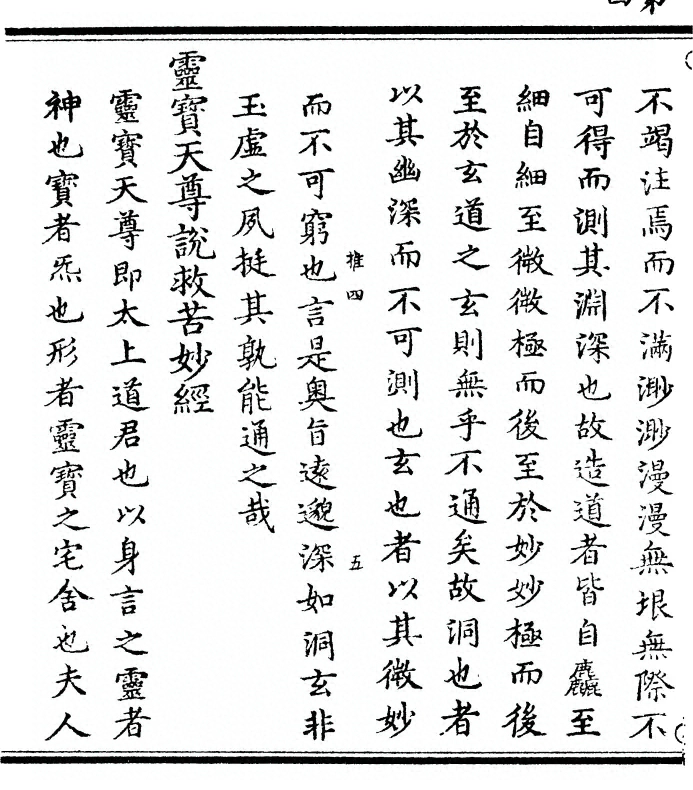 不竭注焉而不滿渺渺漫漫無垠無際不
可得而測其淵深也故造道者皆自麤至
細自細至微微極而後至於妙妙極而後
至於玄道之玄則無乎不通矣故洞也者
以其幽深而不可測也玄也者以其微妙
推四 五
而不可窮也言是奧旨遠邈深如洞玄非
玉虛之夙挺其孰能通之哉
靈寶天尊說救苦妙經
靈寶天尊即太上道君也以身言之靈者
神也寶者炁也形者靈寶之宅舍也夫人